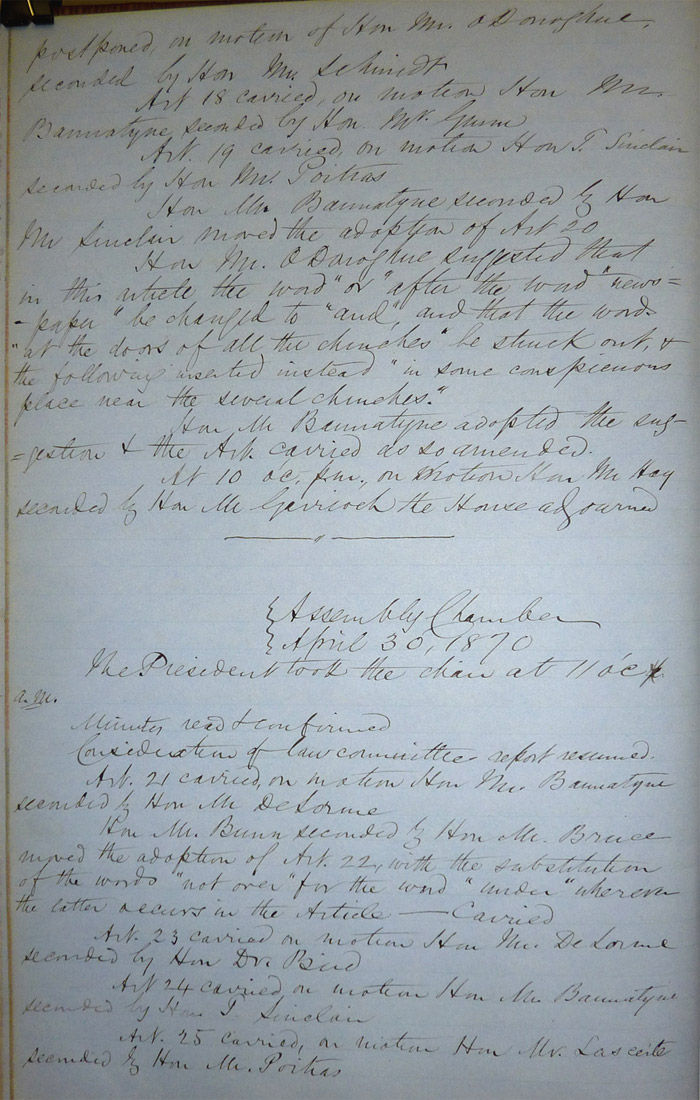 postponed, on motion of Hon Mr. O'Donoghue,
seconded by Hon Mr. Schmidt
Art 18 carried, on motion Hon Mr.
Bannatyne, seconded by Hon. Mr. Gunn
Art. 19 carried, on motion Hon T. Sinclair
seconded by Hon Mr. Poitras
Hon Mr. Bannatyne seconded by Hon
Mr Sinclair moved the adoption of Art 20
Hon Mr. O'Donoghue suggested that
in this article the word "or" after the word "news=
-paper" be changed to "and", and that the words
"at the doors of all the churches" be struck out, &
the following inserted instead "in some conspicuous
place near the several churches."
Hon Mr Bannatyne adopted the sug-
=gestion & the Art. carried as so amended.
At 10 oc. p.m., on motion Hon Mr Hay
seconded by Hon Mr Garrioch the House adjourned
Assembly Chamber
April 30, 1870
The President took the chair at 11 oc
a.m.
Minutes read & confirmed
Consideration of law committee report resumed.
Art. 21 carried, on motion Hon Mr. Bannatyne
seconded by Hon Mr DeLorme
Hon Mr. Bunn seconded by Hon Mr. Bruce
moved the adoption of Art. 22, with the substitution
of the words "not over" for the word "under" wherever
the latter occurs in the Article — Carried
Art. 23 carried on motion Hon Mr. De Lorme
seconded by Hon Dr. Bird
Art 24 carried on motion Hon Mr Bannatyne
seconded by Hon T Sinclair
Art. 25 carried, on motion Hon Mr. Lascerte
seconded by Hon Mr. Poitras